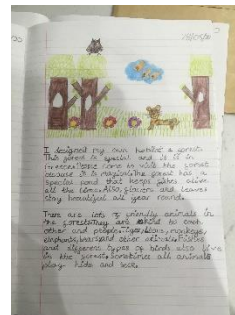 19/05/20
I designed my own habitat a forest.
This forest is special and it is in
to visit the forest
because it is magical. The forest has a
special pond that keeps fishes alive
all the time. Also, flowers and leaves
stay beautiful all year round.
There are lots of friendly animals in
the forest. They are kind to each
other and people. Tigers, lions, monkeys,
elephants, bears and other animals.
and different types of birds also live
in the forest. Sometimes all animals
play hide and seek.